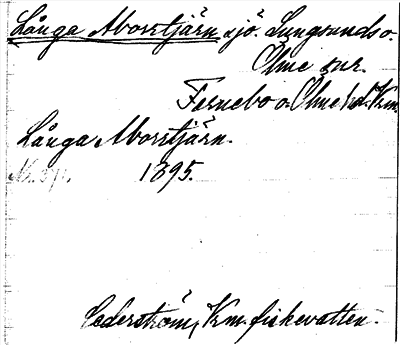 Långa Aborrtjärn sjö. Lungsunds o.
Ölme snr.
Fernebo o. Ölme hd. Krm.
Långa Aborrtjärn.
1895.
Cederström, Krm. fiskevatten